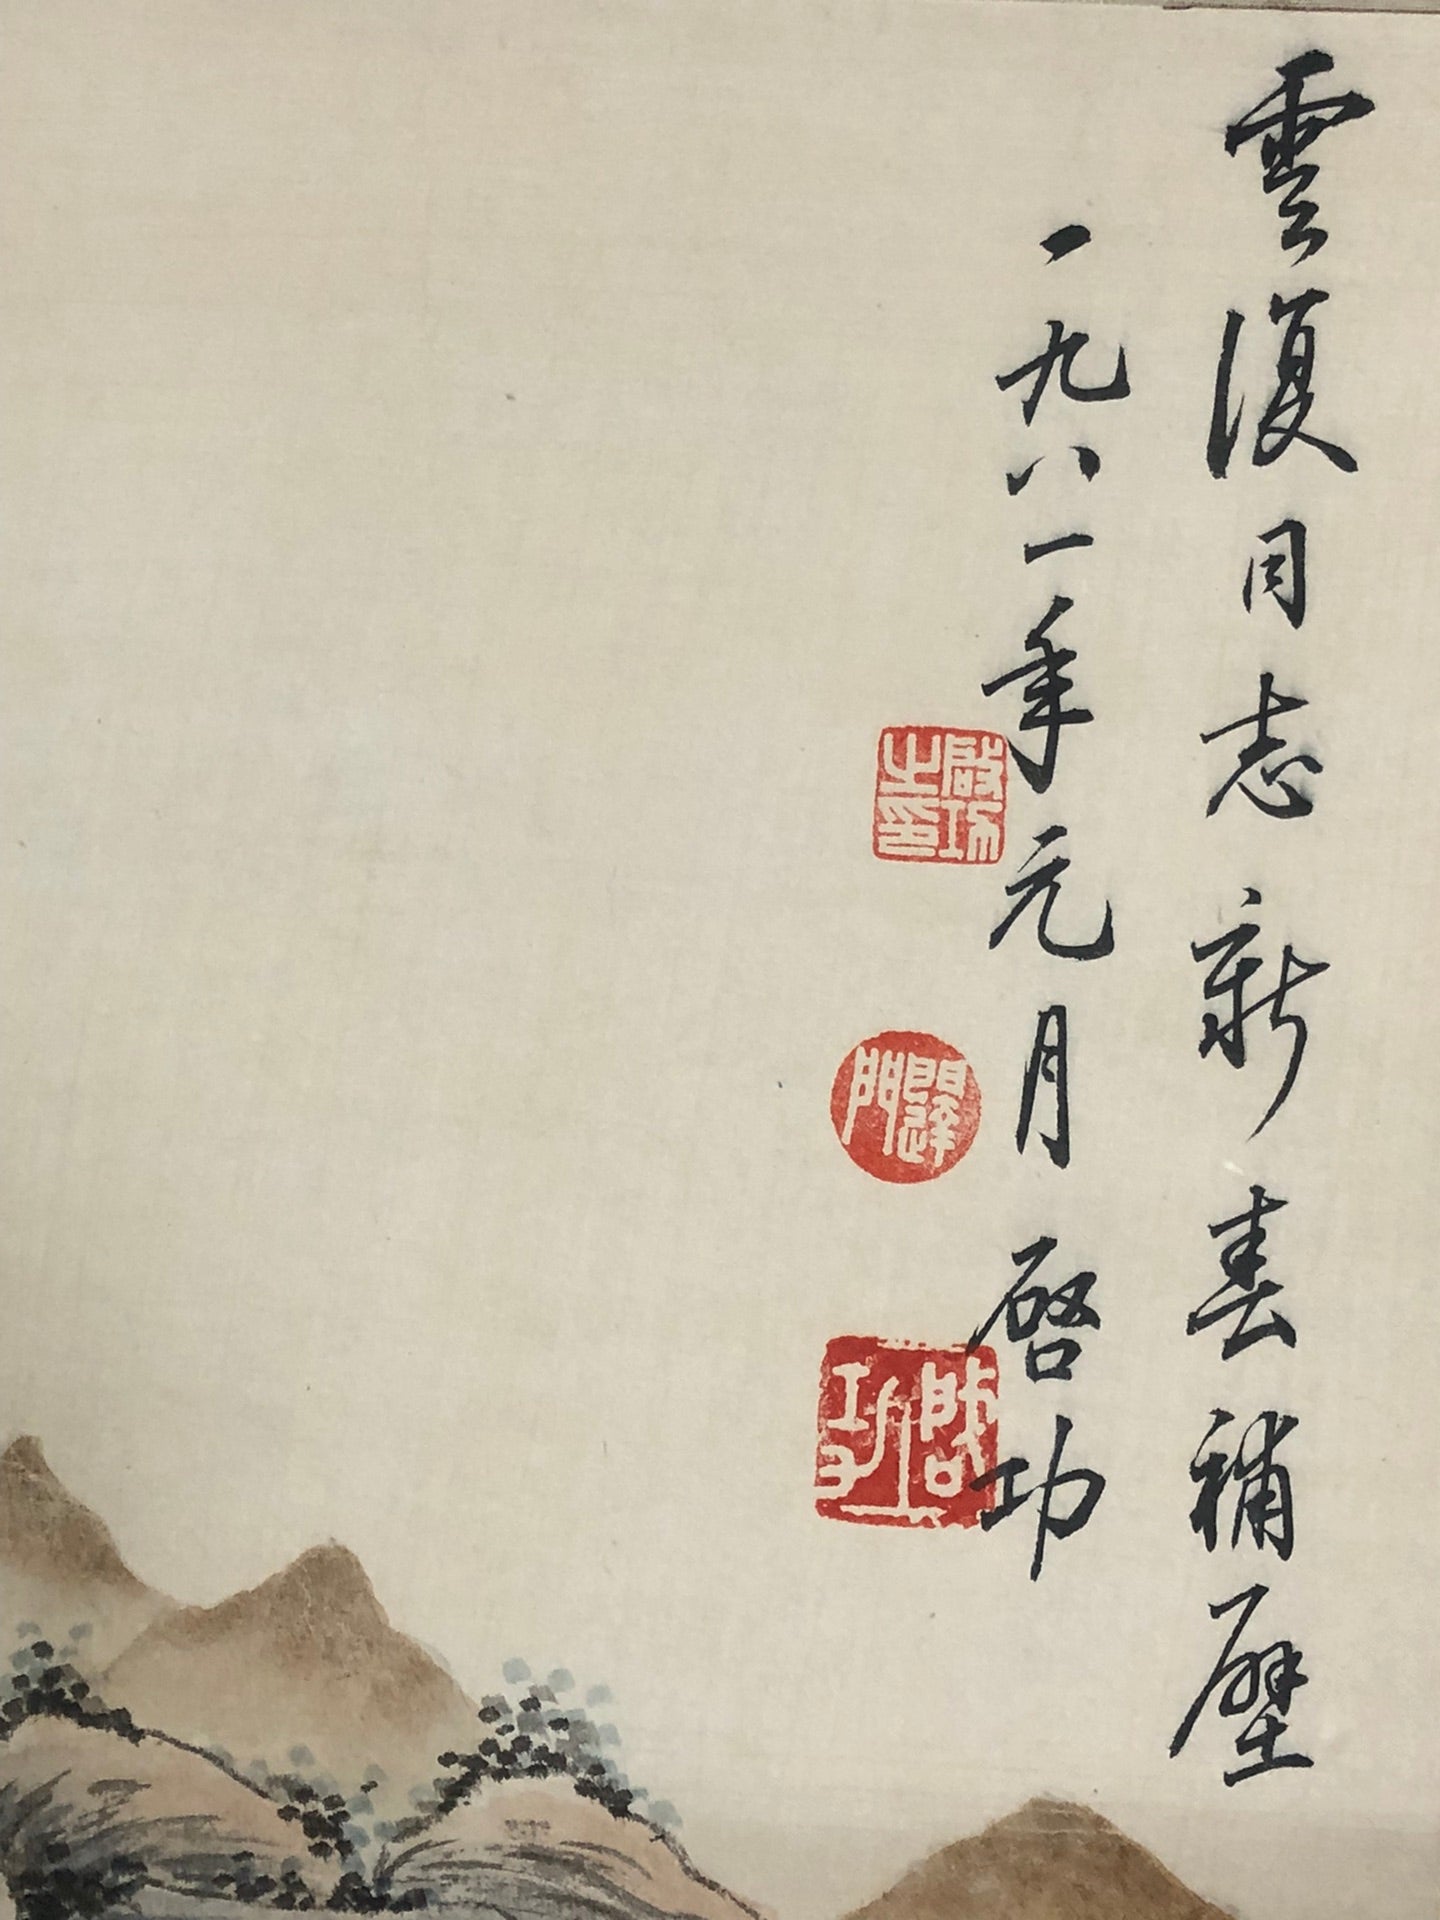 雲復同志新春補壁
一九八一年元月啓功
啟功之印
啟功